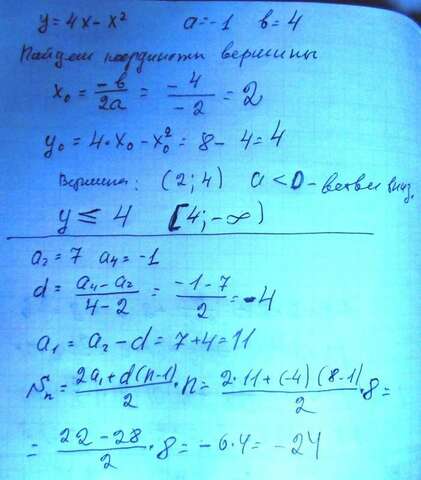 y = 4x - x² a = -1 b = 4
Найдем координаты вершины
x₀ = -b/2a = -4/-2 = 2
y₀ = 4·x₀ - x₀² = 8 - 4 = 4
Вершина: (2; 4) a < 0 - ветви вниз,
y ≤ 4 [4; -∞)
a₂ = 7 a₄ = -1
d = a₄ - a₂/4 - 2 = -1 - 7/2 = -4
a₁ = a₂ - d = 7 + 4 = 11
Sₙ = 2a₁ + d(n-1)/2 · n = 2·11 + (-4)(8-1)/2 · 8 =
= 22 - 28/2 · 8 = -6·4 = -24